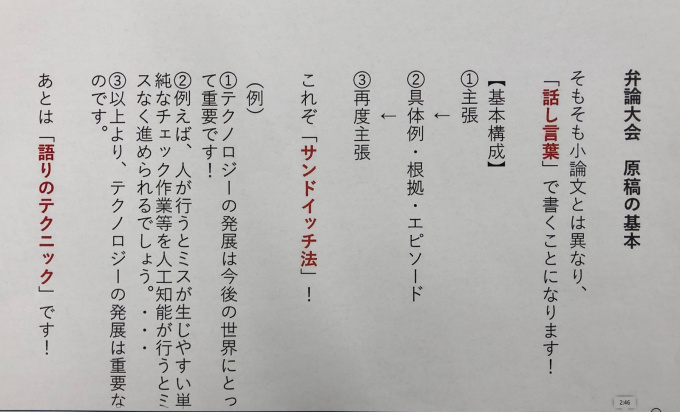 弁論大会　原稿の基本
そもそも小論文とは異なり、
「話し言葉」で書くことになります！
【基本構成】
①主張
←
②具体例・根拠・エピソード
←
③再度主張
これぞ「サンドイッチ法」！
（例）
①テクノロジーの発展は今後の世界にとっ
て重要です！
②例えば、人が行うとミスが生じやすい単
純なチェック作業等を人工知能が行うとミ
スなく進められるでしょう。・・・
③以上より、テクノロジーの発展は重要な
のです。
あとは「語りのテクニック」です！
2:46